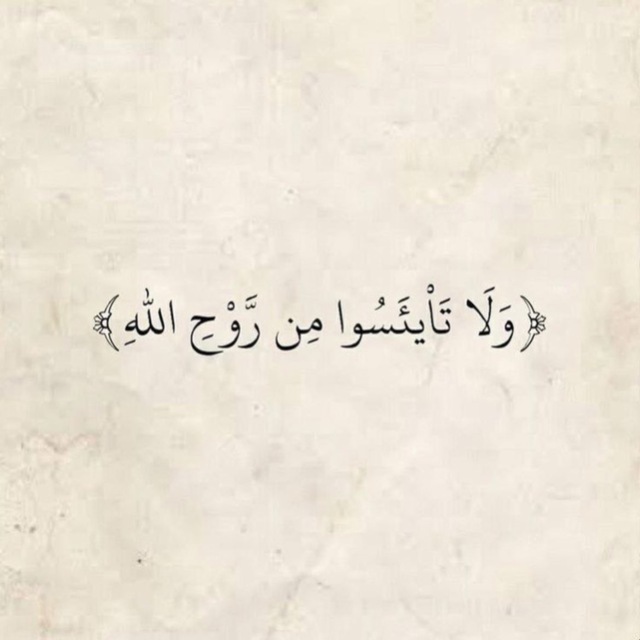 ﴿وَلَا تَاْيئَسُوا مِن رَّوْحِ اللَّهِ﴾